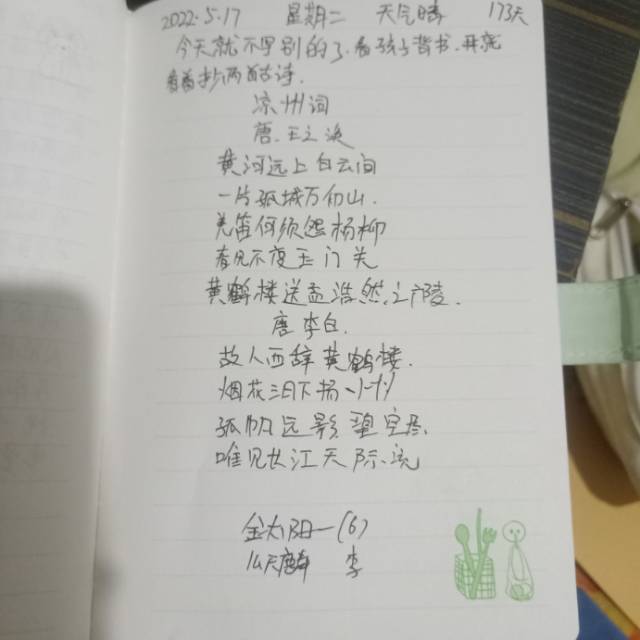 2022.5.17 星期二 天气晴 173天
今天就不写别的了.看孩子背书.我就
着着抄两首诗.
凉州词
唐.王之涣
黄河远上白云间
一片孤城万仞山.
羌笛何须怨杨柳
春风不度玉门关
黄鹤楼送孟浩然之广陵.
唐 李白.
故人西辞黄鹤楼.
烟花三月下扬州
孤帆远影碧空尽
唯见长江天际流
金太阳一(6)
李